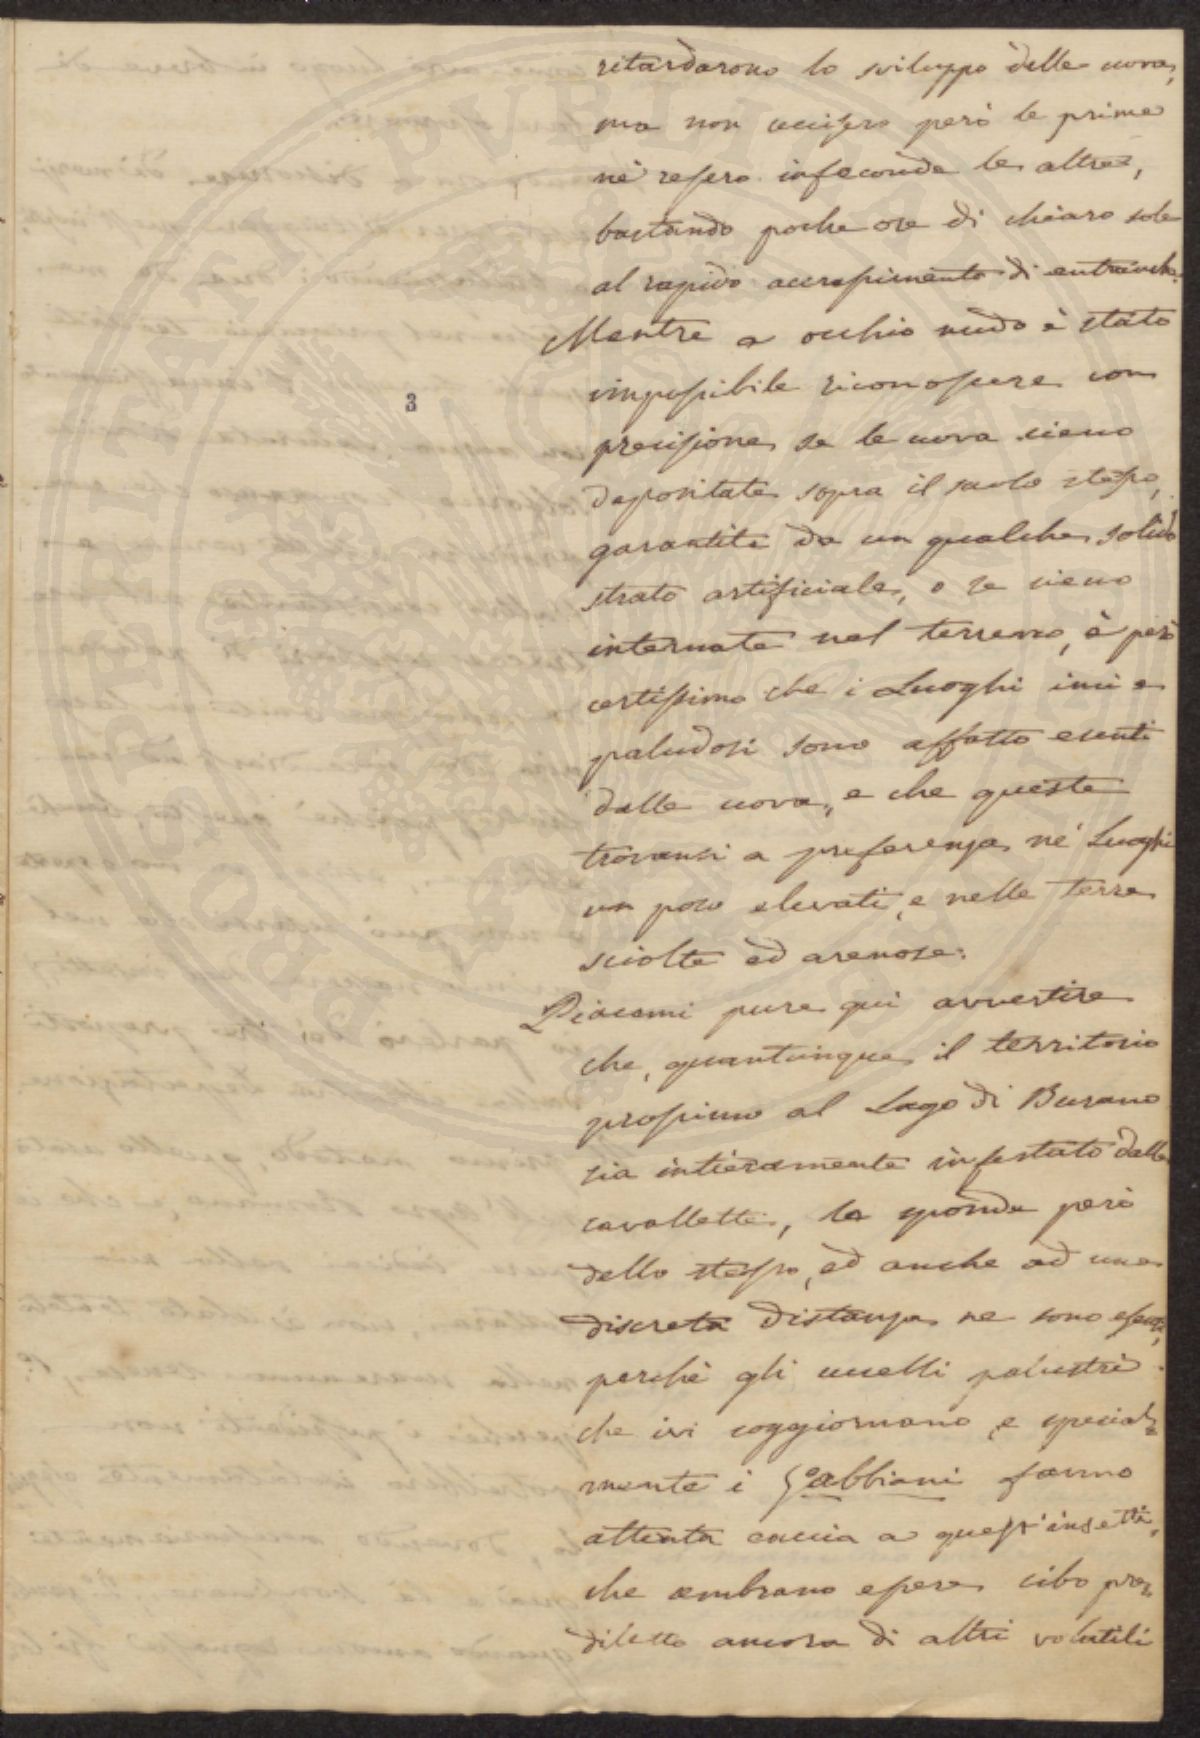 ritardarono lo sviluppo delle uova,
ma non uccisero però le prime
nè resero infeconde le altre,
bastando poche ore di chiaro sole
al rapido accrescimento di entrambe.
Mentre a occhio nudo è stato
impossibile riconoscere con
precisione se le uova sieno
depositate sopra il suolo stesso,
garantite da un qualche solido
strato artificiale, o se sieno
internate nel terreno, è però
certissimo che i Luoghi imi e
paludosi sono affatto esenti
dalle uova, e che queste
trovansi a preferenza ne' Luoghi
un poco elevati, e nelle terre
sciolte ed arenose.
Piacemi pure quì avvertire
che, quantunque il territorio
prossimo al Lago di Burano
sia intieramente infestato dalle
cavallette, le sponde però
dello stesso, ed anche ad una
discreta distanza ne sono esenti,
perchè gli uccelli palustri
che ivi soggiornano, e special=
mente i Gabbiani fanno
attenta caccia a quest'insetti,
che sembrano essere cibo pre=
diletto ancora di altri volatili
3